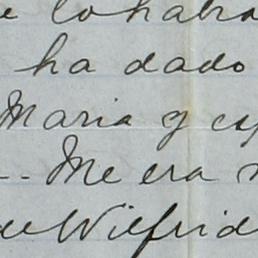 e lo habra
ha dado
Maria y es
-- Me era
ue Wilfrid